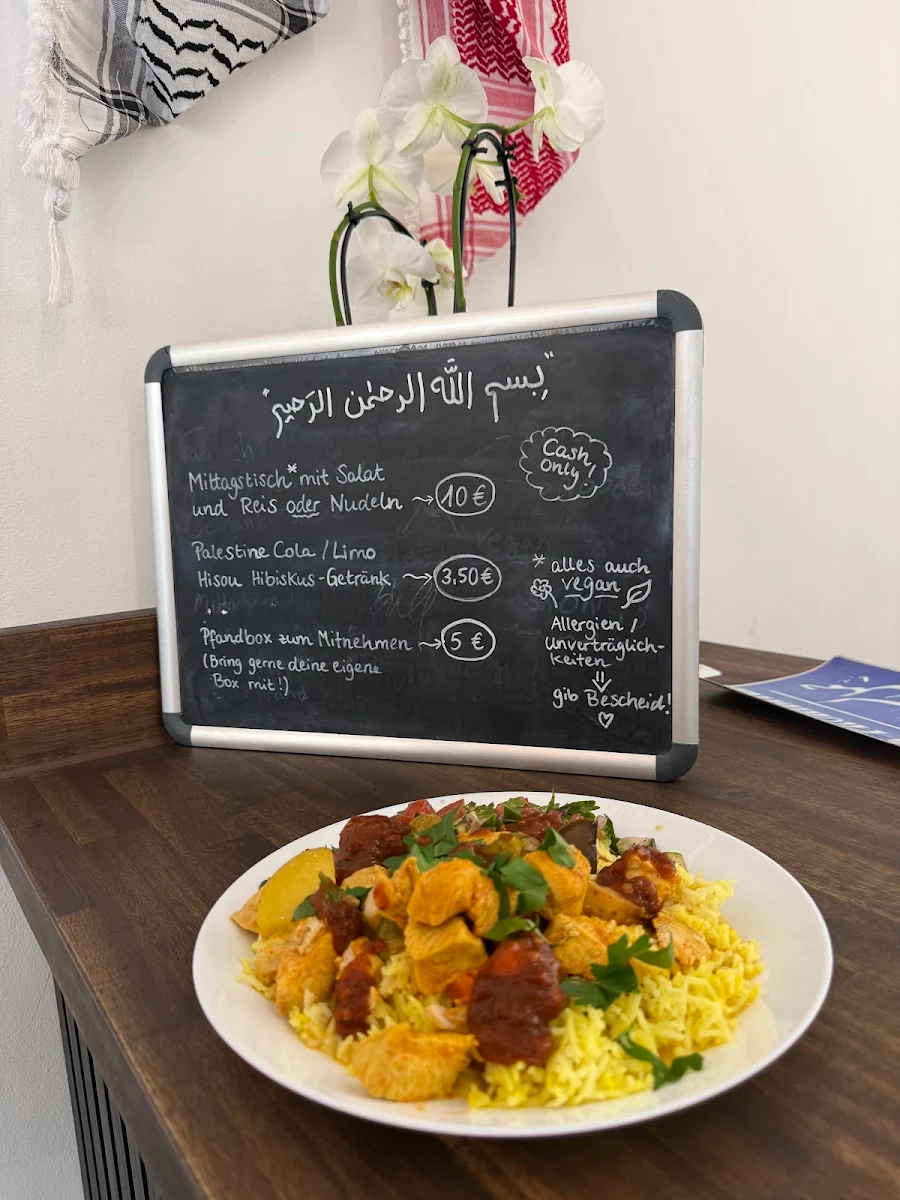 "بِسم اللّٰه الرحمٰن الرَحيم"
Cash only!
Mittagstisch* mit Salat
und Reis oder Nudeln → 10 €
Palestine Cola / Limo
Hisou Hibiskus-Getränk → 3.50€
Pfandbox zum Mitnehmen → 5 €
(Bring gerne deine eigene
Box mit!)
* alles auch
vegan
Allergien /
Unverträglich-
keiten
⇓
gib Bescheid!
♡